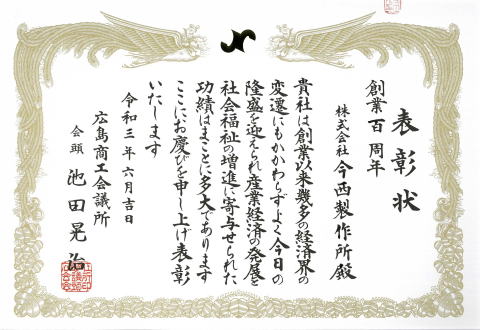 表彰状
創業百周年
株式会社今西製作所殿
貴社は創業以来幾多の経済界の
変遷にもかかわらずよく今日の
隆盛を迎えられ産業経済の発展と
社会福祉の増進に寄与せられた
功績はまことに多大であります
ここにお慶びを申し上げ表彰
いたします
令和三年六月吉日
広島商工会議所
会頭 池田晃治